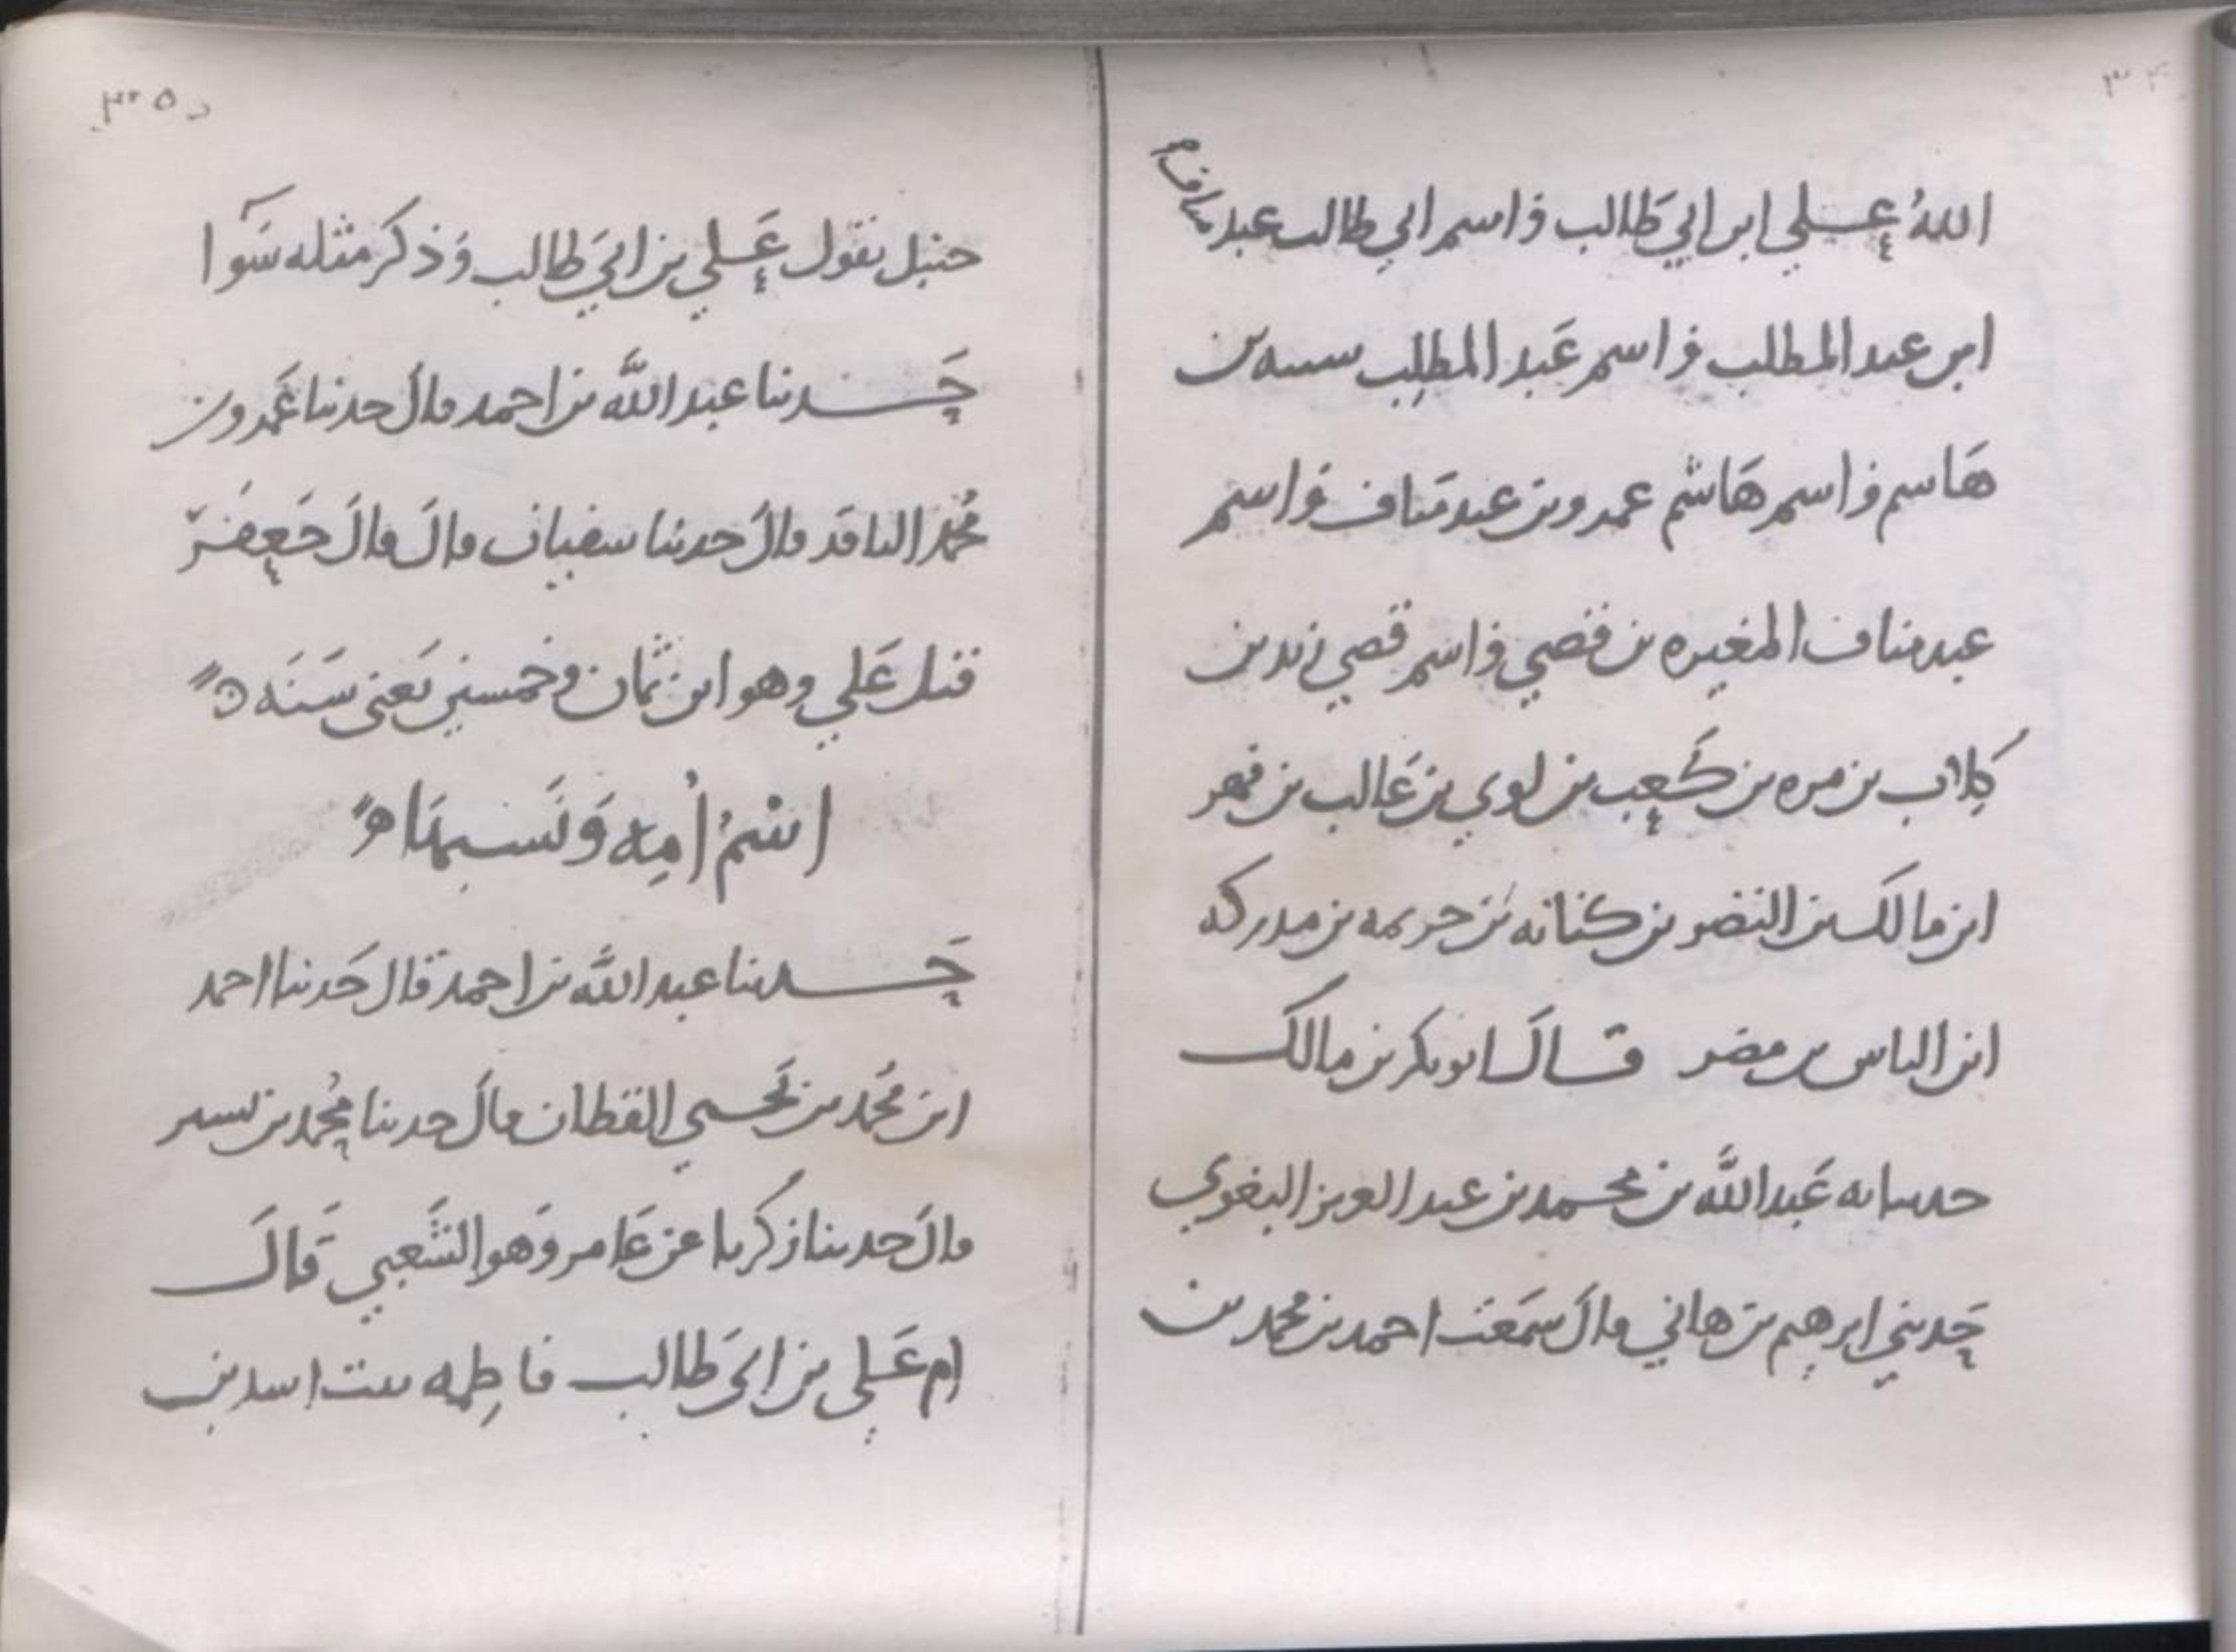 الله علي ابن ابي طالب واسم ابي طالب عبد مناف
ابن عبد المطلب واسم عبد المطلب شيبه بن
هاشم واسم هاشم عمرو بن عبد مناف واسم
عبد مناف المغيره بن قصي واسم قصي زيد بن
كلاب بن مره بن كعب بن لوي بن غالب بن فهر
ابن مالك بن النضر بن كنانه بن خزيمه بن مدركه
ابن الياس بن مضر قال ابو بكر بن مالك
حدثنا به عبد الله بن محمد بن عبد العزيز البغوي
حدثني ابرهيم بن هاني قال سمعت احمد بن محمد بن
٣٥
حنبل يقول علي بن ابي طالب وذكر مثله سوا
حدثنا عبد الله بن احمد قال حدثنا عمرو بن
محمد الناقد قال حدثنا سفيان قال قال جعفر
قتل علي وهو ابن ثمان وخمسين يعني سنه
اسم امه ونسبها
حدثنا عبد الله بن احمد قال حدثنا احمد
ابن محمد بن يحيى القطان قال حدثنا محمد بن بشر
قال حدثنا زكريا عن عامر وهو الشعبي قال
ام علي بن ابي طالب فاطمه بنت اسد بن